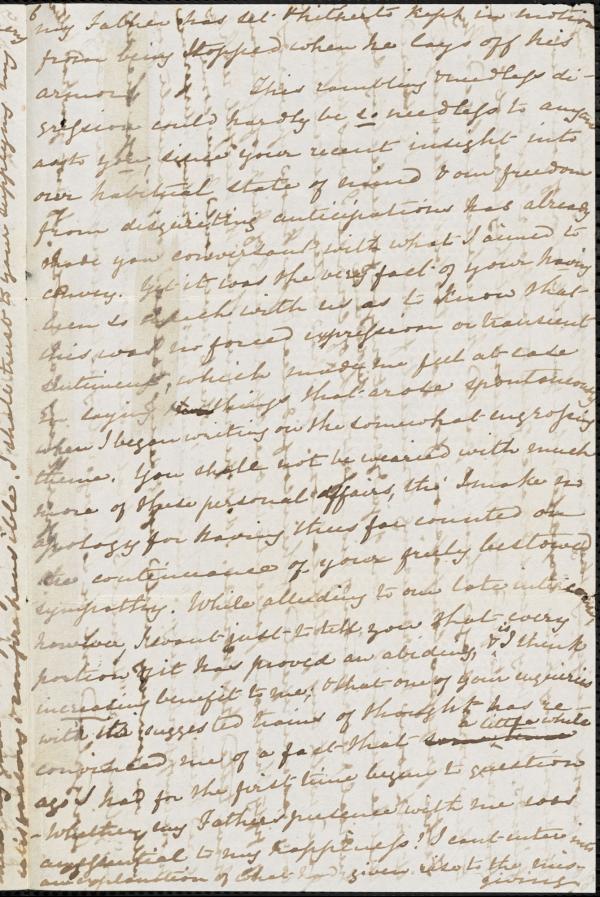 6
my Father has set hitherto kept in motion
from being stopped when he lays off his
armour. This rambling & needless di-
gression could hardly be so needless to anyone
as to you, since your recent insight into
our habitual state of mind & our freedom
from dispiriting anticipations has already
made you conversant with what I aimed to
convey. Yet it was the very fact of your having
been so much with us as to know that
this was no forced expression or transient
sentiment, which made me feel at ease
in saying things that arose spontaneously
when I began writing on the somewhat engrossing
theme. You shall not be wearied with much
more of these personal affairs, tho' I make no
apology for having thus far counted on
the continuance of your freely bestowed
sympathy. While alluding to our late interviews
however, I want just to tell you that every
portion of it has proved an abiding, & I think
increasing benefit to me; & that one of your inquiries
with its suggested trains of thought has re-
convinced me of a fact that a little while
ago I had for the first time began to question
- Whether my Father's presence with me was
essential to my happiness! I can't enter into
an explanation of what had given rise to the mis-
giving
I shall trust to your supplying my